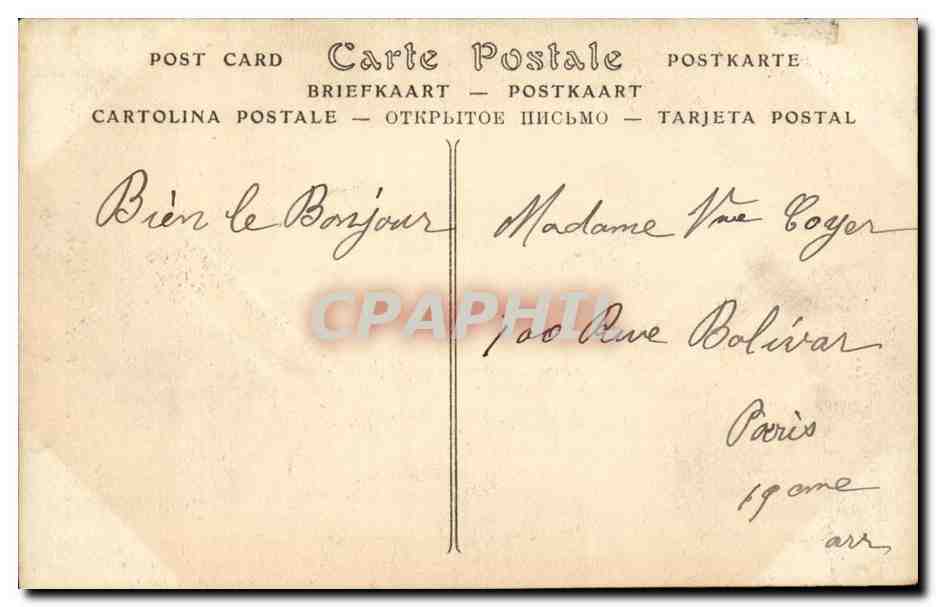 POST CARD Carte Postale POSTKARTE
BRIEFKAART — POSTKAART
CARTOLINA POSTALE — ОТКРЫТОЕ ПИСЬМО — TARJETA POSTAL
Bien le Bonjour
Madame Vve Coyer
100 Rue Bolivar
Paris
19eme
arr
CPAPHIL